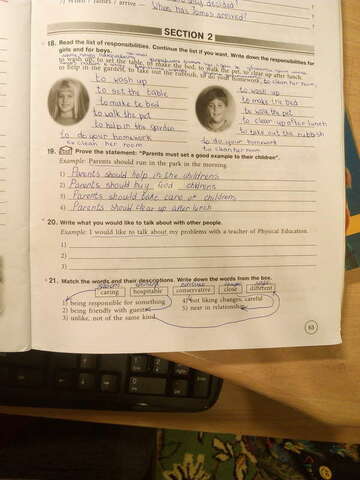 When has James arrived?
SECTION 2
18. Read the list of responsibilities. Continue the list if you want. Write down the responsibilities for
girls and for boys.
to wash up, to set the table, to make the bed, to walk the pet, to clear up after lunch,
to help in the garden, to take out the rubbish, to do your homework, to clean her room
to wash up
to set the table
to make te bed
to walk the pet
to help in the garden
to do your homework
to clean her room
to wash up
to make the bed
to walk the pet
to clear up after lunch
to take out the rubbish
to do your homework
to clean her room
19. Prove the statement: "Parents must set a good example to their children".
Example: Parents should run in the park in the morning.
1) Parents should help in the childrens
2) Parents should buy childrens
3) Parents should take care of childrens
4) Parents should clear up after lunch
20. Write what you would like to talk about with other people.
Example: I would like to talk about my problems with a teacher of Physical Education.
1)
2)
3)
21. Match the words and their descriptions. Write down the words from the box.
caring hospitable conservative close different
1) being responsible for something
2) being friendly with guests
3) unlike, not of the same kind
4) not liking changes, careful
5) near in relationship
63